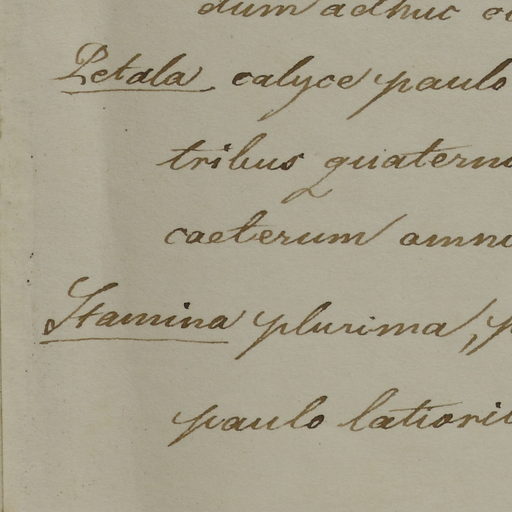 dum adhuc
Petala calyce paulo
tribus quatern
caeterum omn
Stamina plurima, p
paulo latiori